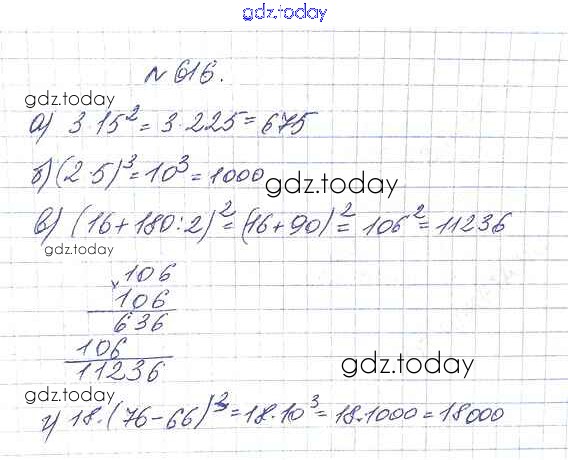 gdz.today
№ 616.
gdz.today
а) 3·15² = 3·225 = 675
б) (2·5)³ = 10³ = 1000
gdz.today
в) (16+180:2)² = (16+90)² = 106² = 11236
gdz.today
×106
106
636
106
11236
gdz.today
gdz.today
г) 18·(76−66)³ = 18·10³ = 18·1000 = 18000